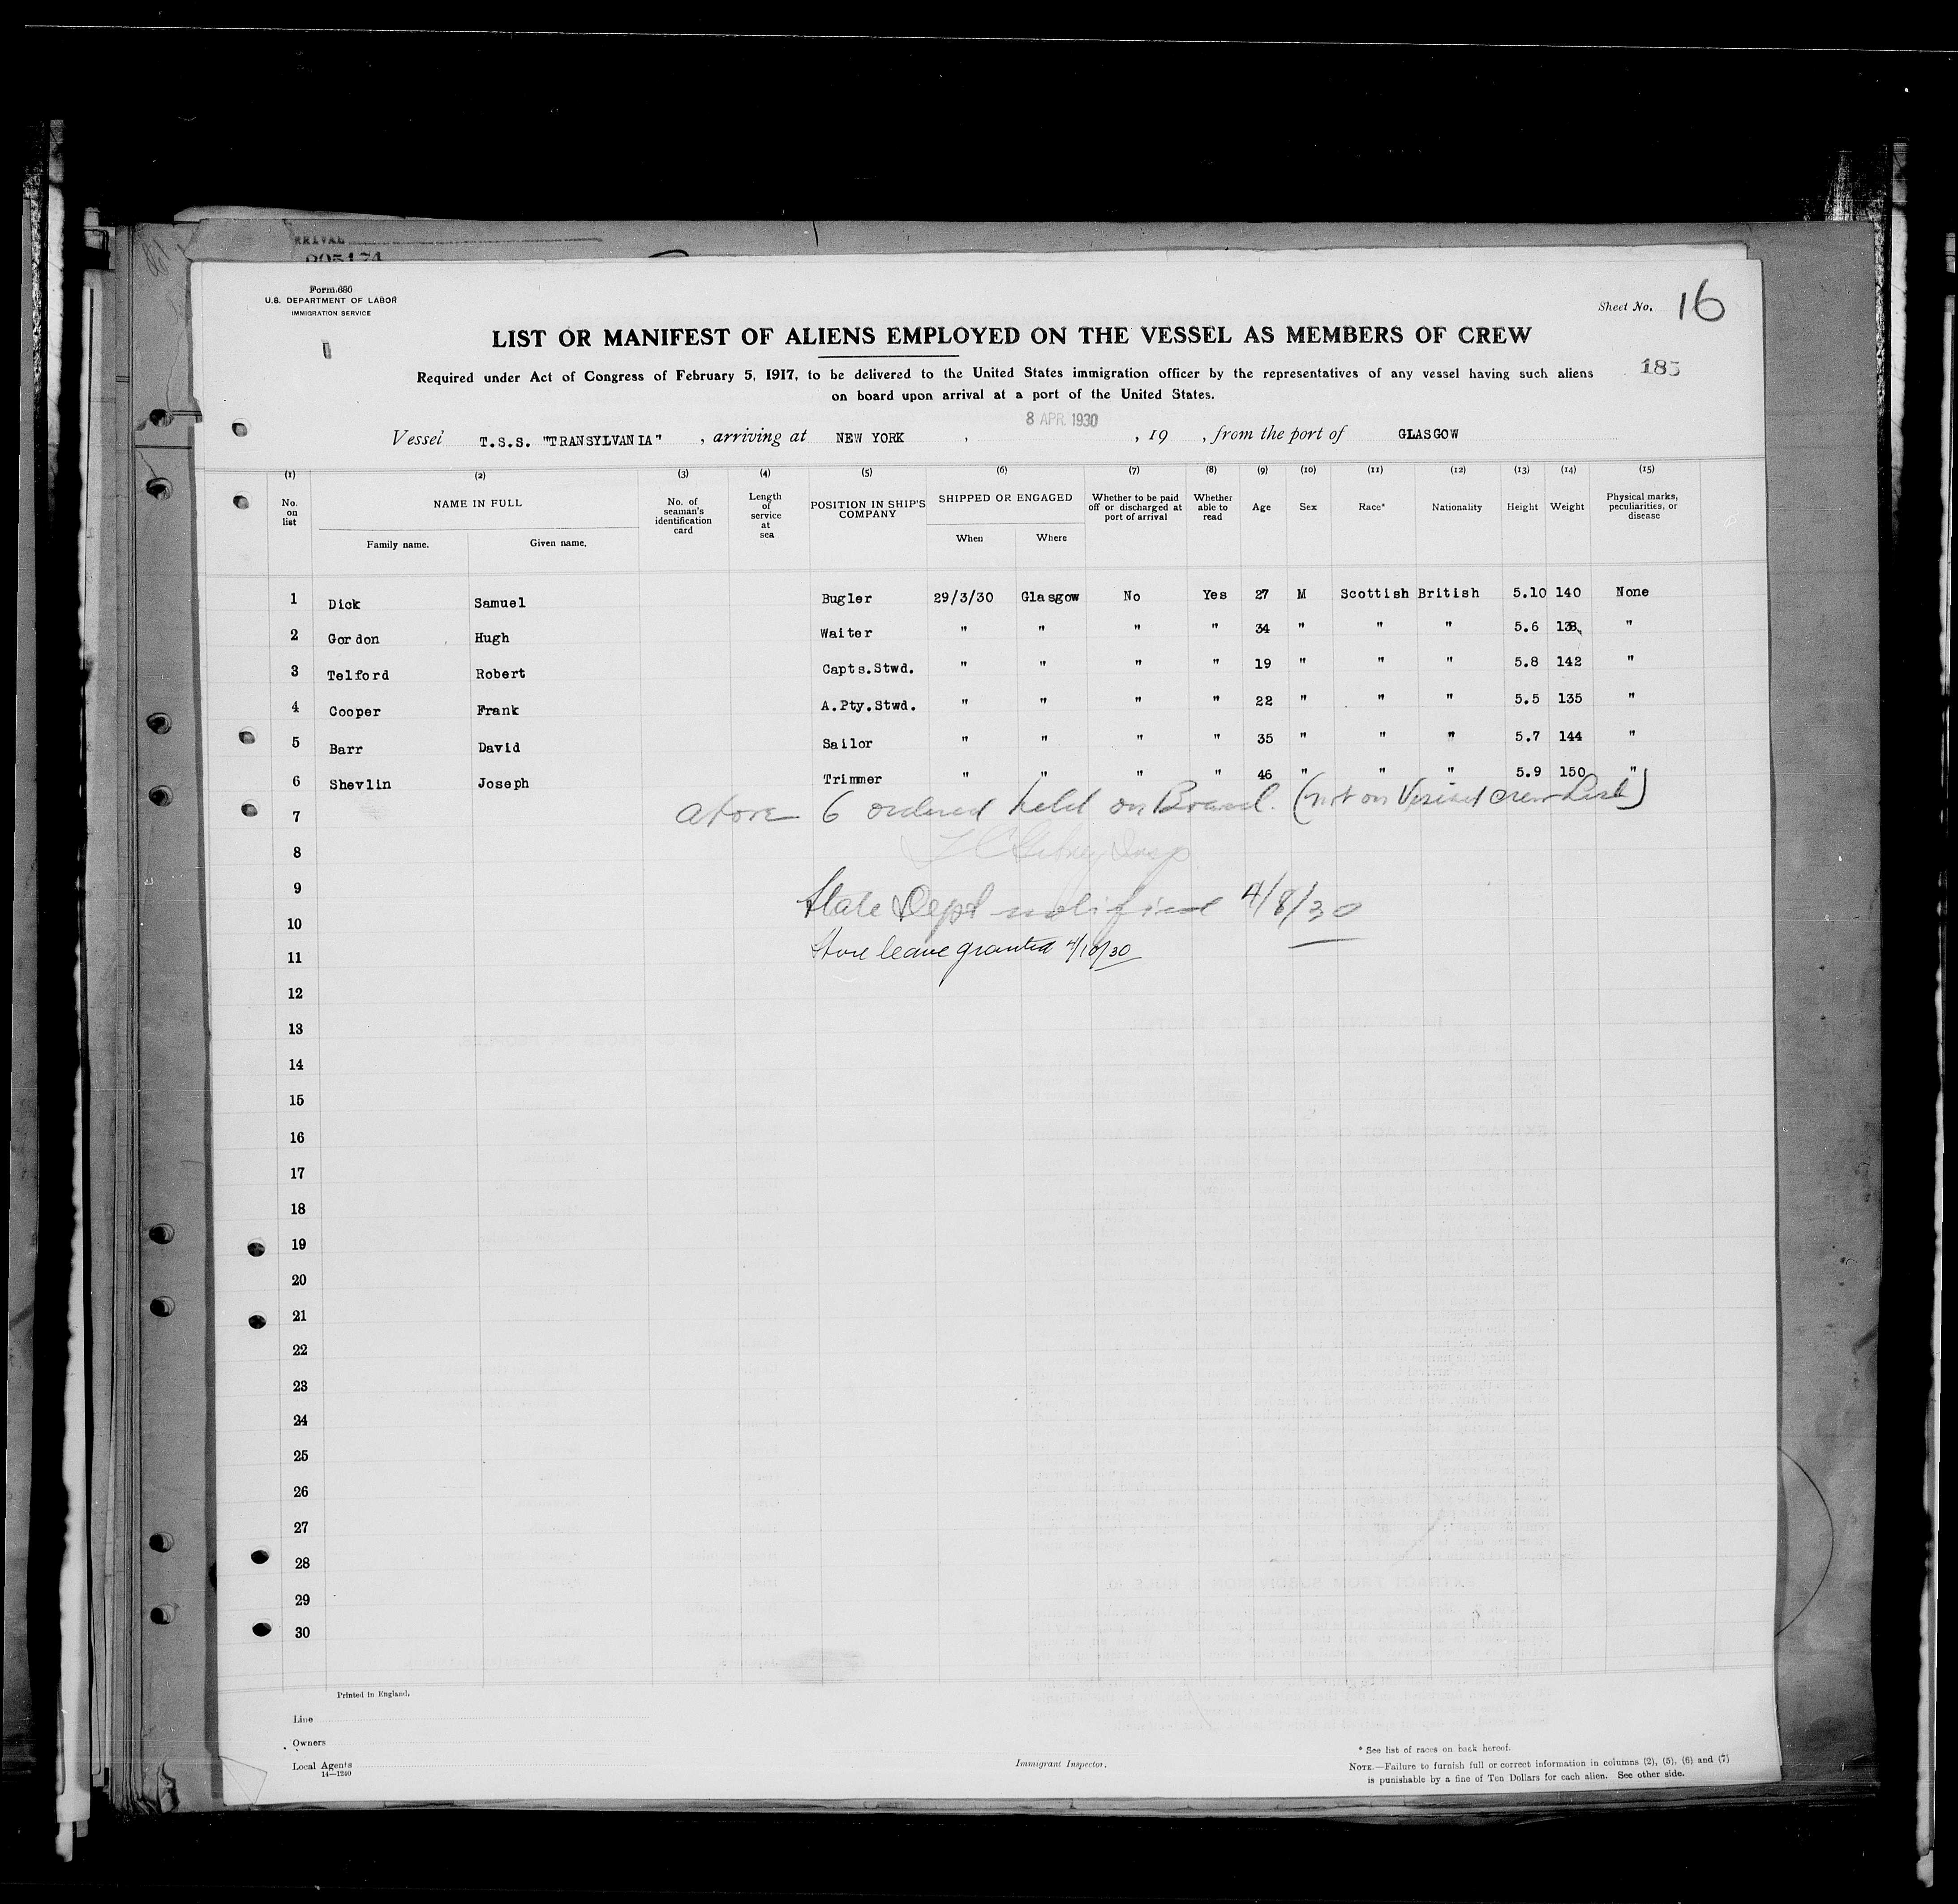 RRIVAL
205174
Form 680
U.S. DEPARTMENT OF LABOR
IMMIGRATION SERVICE
Sheet No. 16
LIST OR MANIFEST OF ALIENS EMPLOYED ON THE VESSEL AS MEMBERS OF CREW
185
Required under Act of Congress of February 5, 1917, to be delivered to the United States immigration officer by the representatives of any vessel having such aliens
on board upon arrival at a port of the United States.
8 APR. 1930
Vessel T.S.S. "TRANSYLVANIA" , arriving at NEW YORK , , 19 , from the port of GLASGOW
(1) (2) (3) (4) (5) (6) (7) (8) (9) (10) (11) (12) (13) (14) (15)
No. on list NAME IN FULL No. of seaman's identification card Length of service at sea POSITION IN SHIP'S COMPANY SHIPPED OR ENGAGED Whether to be paid off or discharged at port of arrival Whether able to read Age Sex Race* Nationality Height Weight Physical marks, peculiarities, or disease
Family name. Given name. When Where
1 Dick Samuel Bugler 29/3/30 Glasgow No Yes 27 M Scottish British 5.10 140 None
2 Gordon Hugh Waiter " " " " 34 " " " 5.6 138 "
3 Telford Robert Capts.Stwd. " " " " 19 " " " 5.8 142 "
4 Cooper Frank A.Pty.Stwd. " " " " 22 " " " 5.5 135 "
5 Barr David Sailor " " " " 35 " " " 5.7 144 "
6 Shevlin Joseph Trimmer " " " " 46 " " " 5.9 150 "
7 above 6 ordered held on Board. (not on Visied crew List)
8 Insp
9 State Dept notified 4/8/30
10
11 Shore leave granted 4/10/30
12
13
14
15
16
17
18
19
20
21
22
23
24
25
26
27
28
29
30
Printed in England.
Line
Owners
Local Agents
14—1240
Immigrant Inspector.
* See list of races on back hereof.
NOTE.—Failure to furnish full or correct information in columns (2), (5), (6) and (7)
is punishable by a fine of Ten Dollars for each alien. See other side.